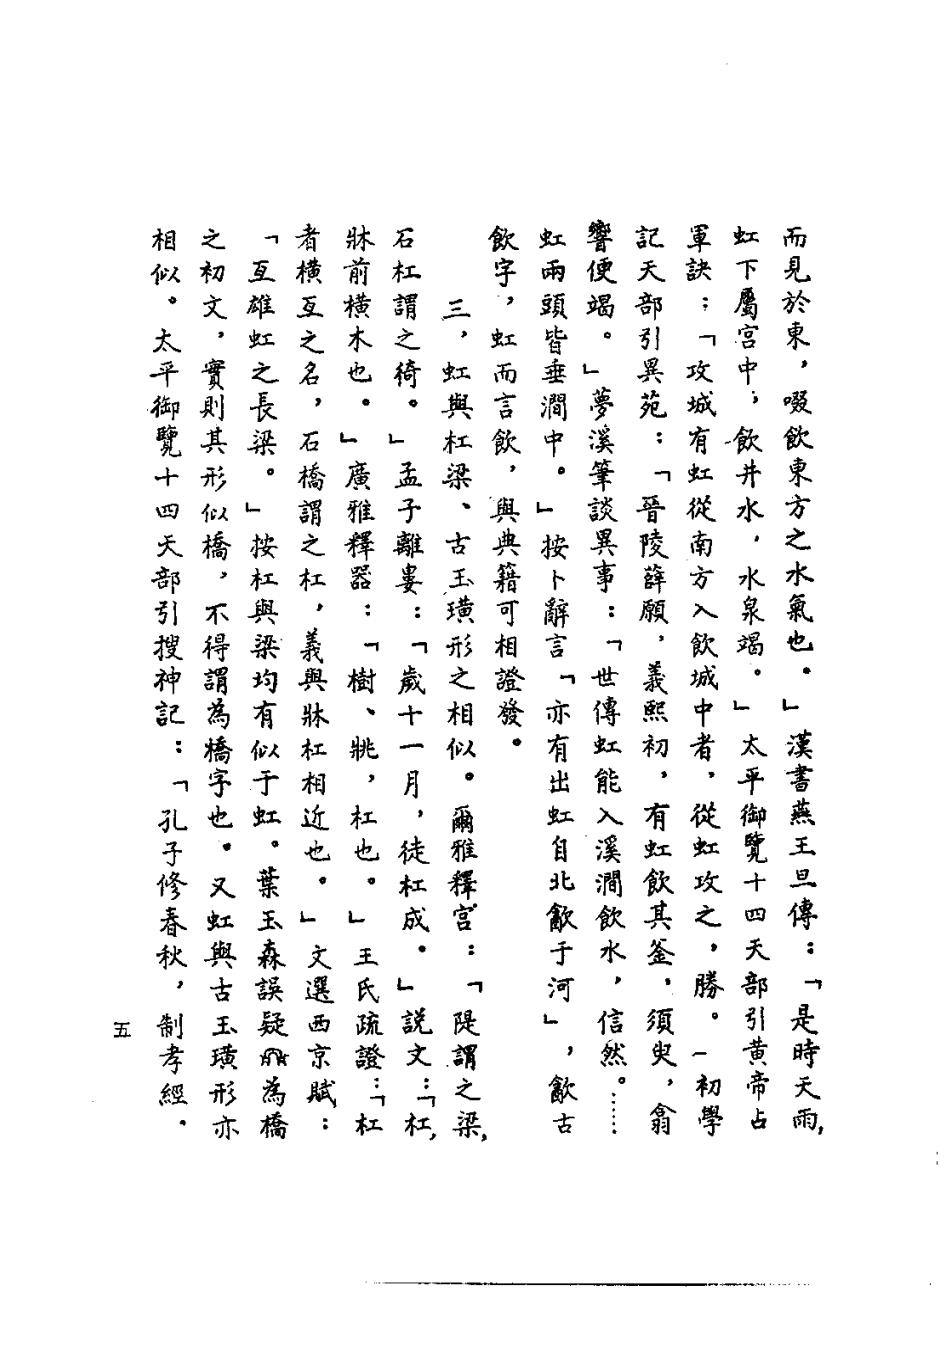 而見於東，啜飲東方之水氣也。」漢書燕王旦傳：「是時天雨，
虹下屬宮中，飲井水，水泉竭。」太平御覽十四天部引黃帝占
軍訣：「攻城有虹從南方入飲城中者，從虹攻之，勝。」初學
記天部引異苑：「晉陵薛願，義熙初，有虹飲其釜，須臾，翕
響便竭。」夢溪筆談異事：「世傳虹能入溪澗飲水，信然。……
虹兩頭皆垂澗中。」按卜辭言「亦有出虹自北㱃于河」，㱃古
飲字，虹而言飲，與典籍可相證發。
三，虹與杠梁、古玉璜形之相似。爾雅釋宮：「隄謂之梁，
石杠謂之徛。」孟子離婁：「歲十一月，徒杠成。」說文：「杠，
牀前橫木也。」廣雅釋器：「樹、桃，杠也。」王氏疏證：「杠
者橫亙之名，石橋謂之杠，義與牀杠相近也。」文選西京賦：
「亙雄虹之長梁。」按杠與梁均有似于虹。葉玉森誤疑為橋
之初文，實則其形似橋，不得謂為橋字也。又虹與古玉璜形亦
相似。太平御覽十四天部引搜神記：「孔子修春秋，制孝經．
五